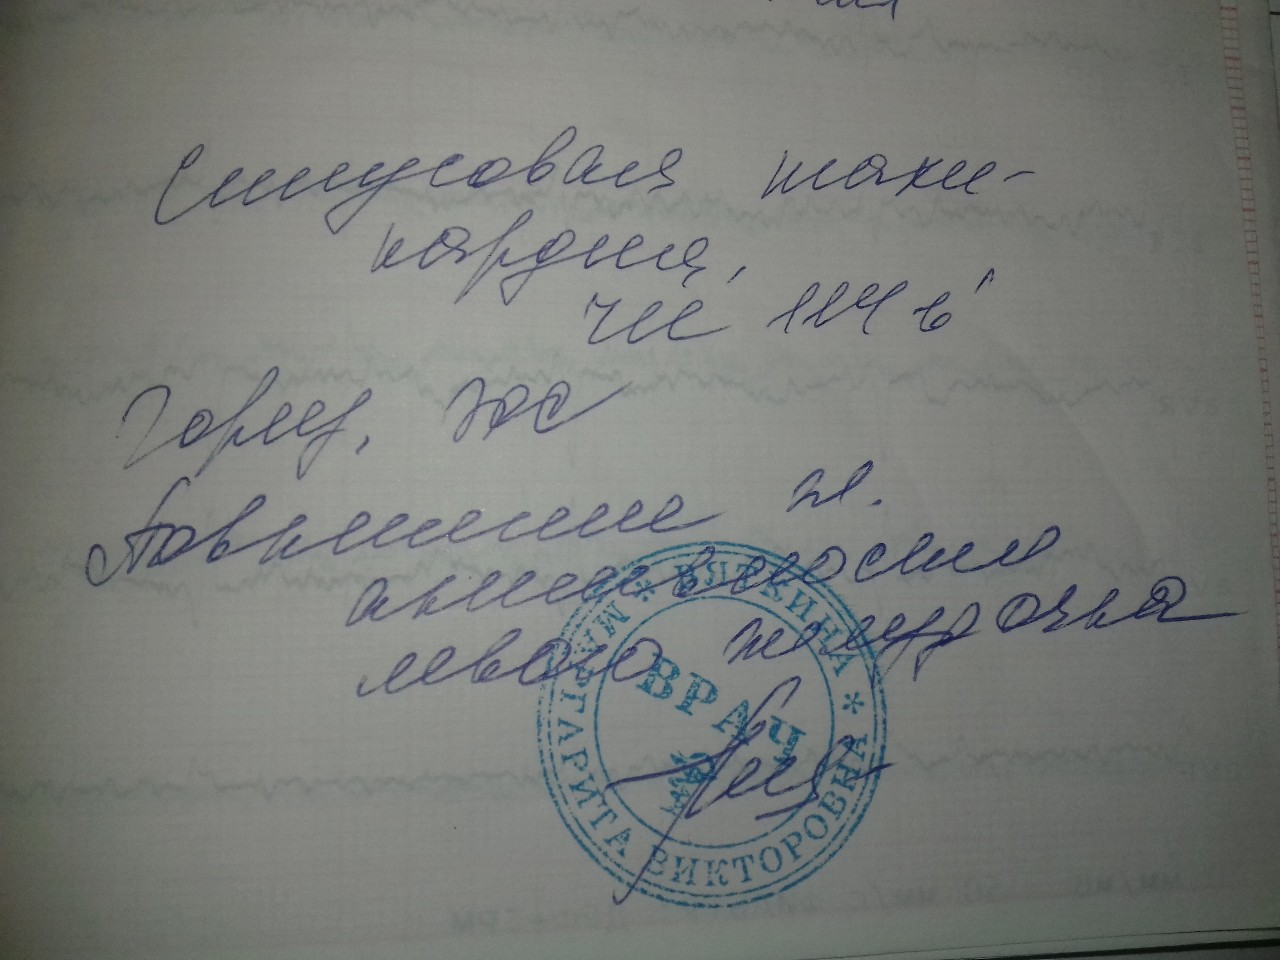 Синусовая тахи-
кардия,
чсс 114 в '
Гориз. ЭОС
Повышение эл.
активности
левого желудочка
* ВЯТКИНА * МАРГАРИТА ВИКТОРОВНА
ВРАЧ